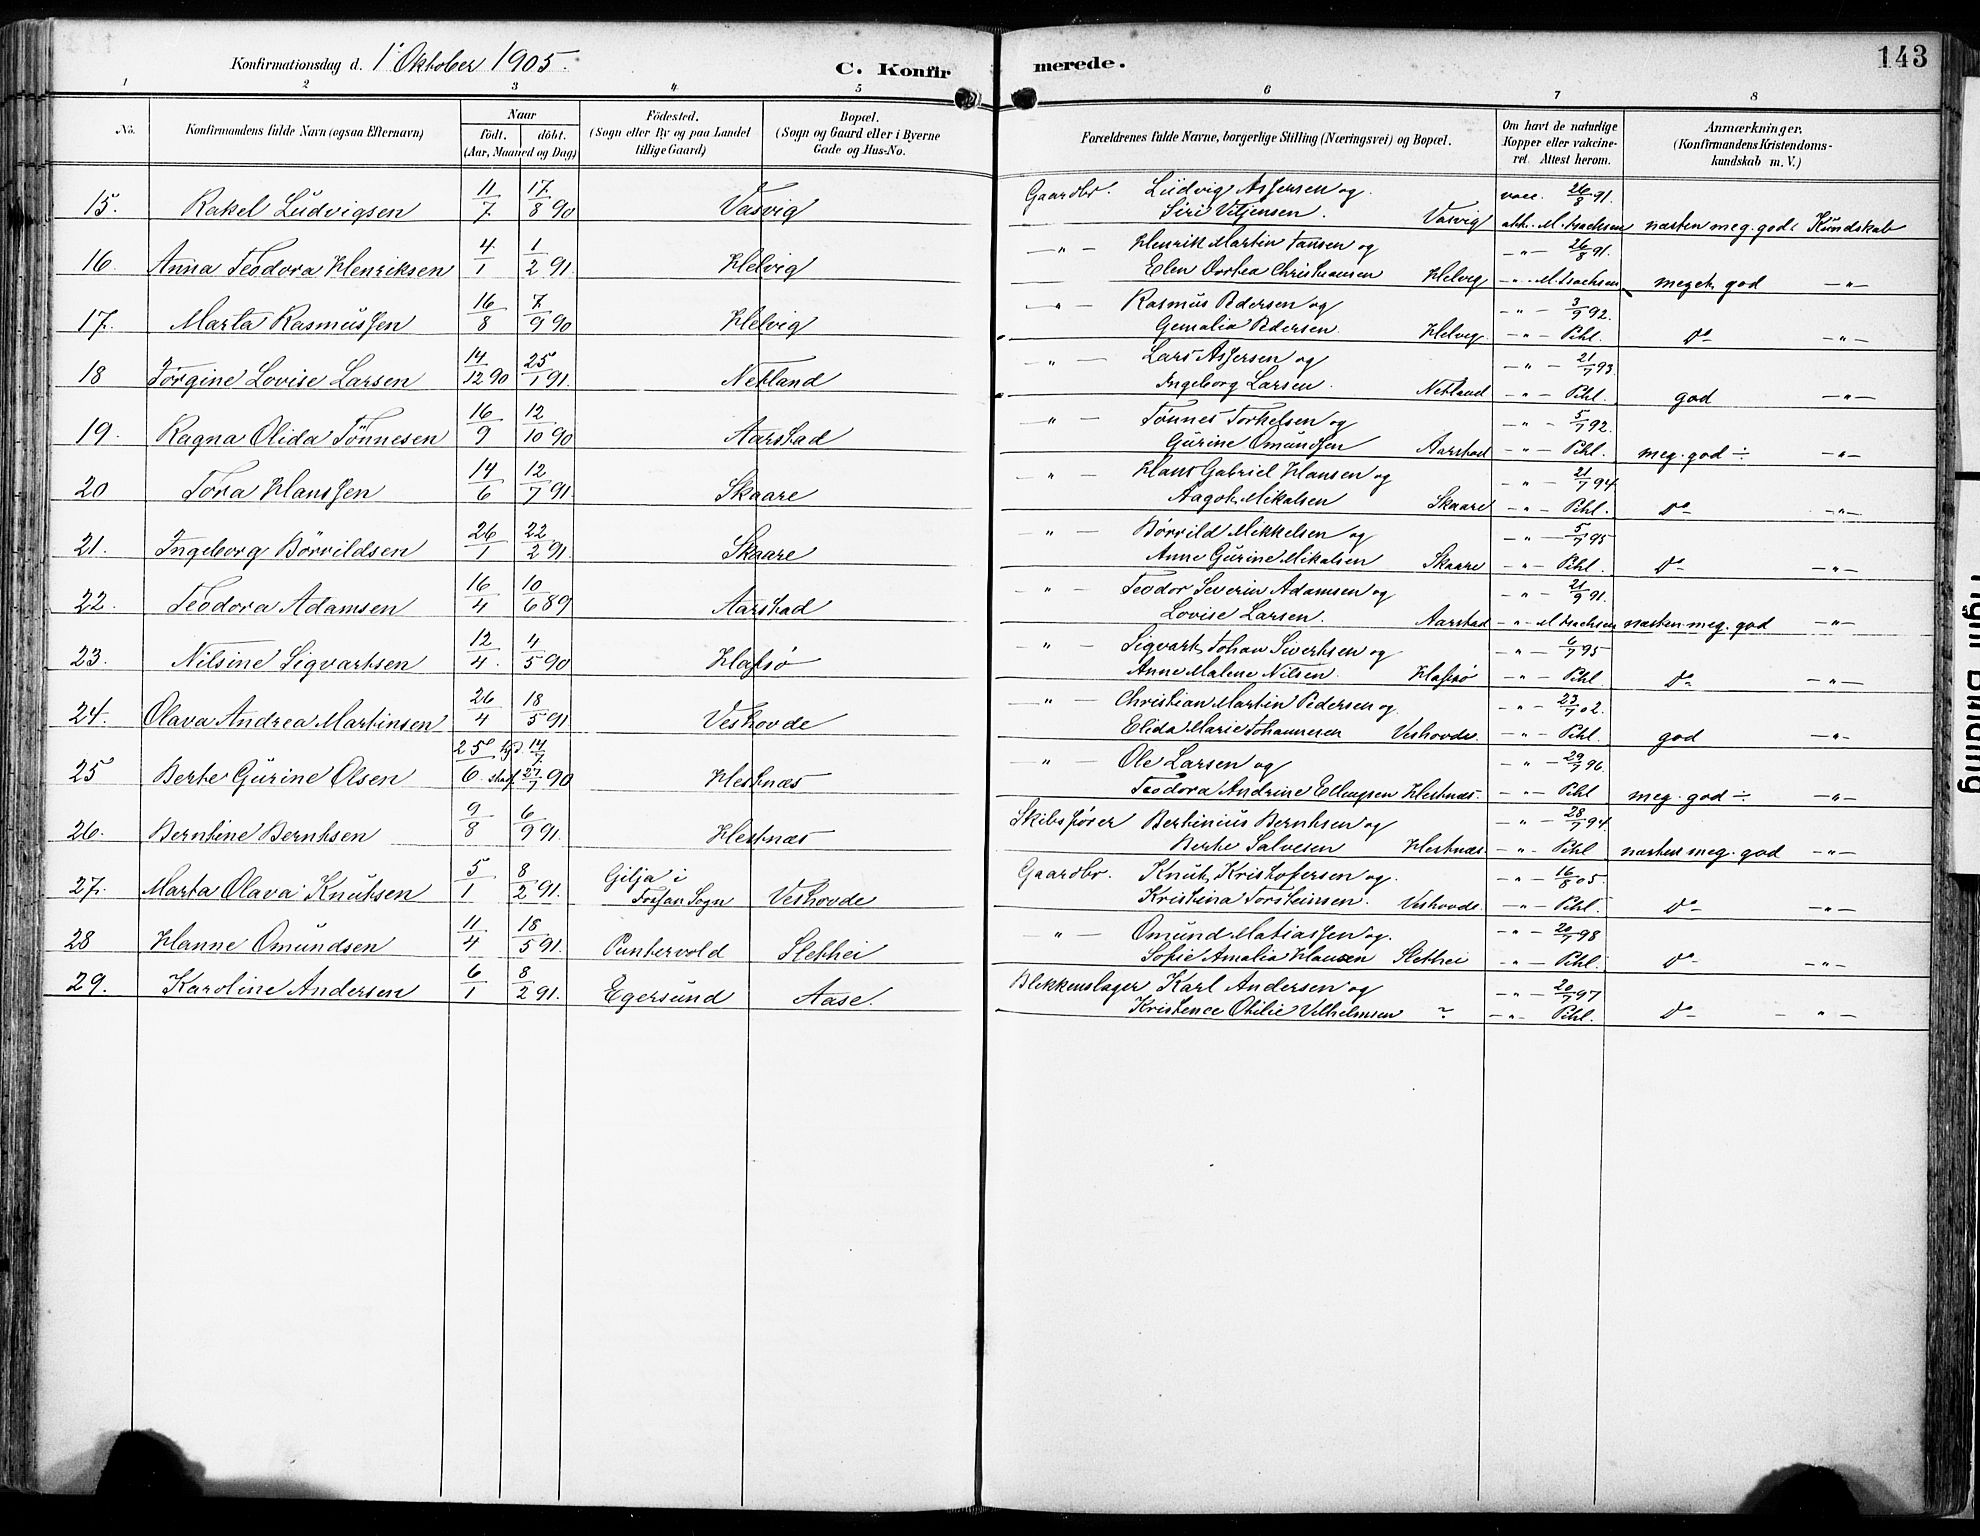 Konfirmationsdag d. 1' Oktober 1905.
C. Konfirmerede.
143
1 2 3 4 5 6 7 8
No.
Konfirmandens fulde Navn (ogsaa Efternavn)
Naar
födt. döbt.
(Aar, Maaned og Dag)
Födested.
(Sogn eller By og paa Landet tillige Gaard)
Bopæl.
(Sogn og Gaard eller i Byerne Gade og Hus-No.
Forældrenes fulde Navne, borgerlige Stilling (Næringsvei) og Bopæl.
Om havt de naturlige Kopper eller vakcineret. Attest herom.
Anmærkninger.
(Konfirmandens Kristendomskundskab m. V.)
15. Rakel Ludvigsen 11/7 17/8 90 Vasvig Gaardbr. Ludvig Assersen og vacc. 26/8 91.
Siri Viljensen. Vasvig att. M. Isachsen næsten meg. god Kundskab
16. Anna Teodora Henriksen 4/1 1/2 91. Helvig — " — Henrik Martin Jansen og — " — 26/8 91.
Elen Dortea Christiansen Helvig — " — M. Isachsen meget god — " —
17. Marta Rasmussen 16/8 7/9 90 Helvig — " — Rasmus Pedersen og — " — 3/9 92.
Gemalia Pedersen Helvig — " — Pihl. do — " —
18 Jørgine Lovise Larsen 14/12 90 25/1 91. Netland — " — Lars Assersen og — " — 21/7 93
Ingeborg Larsen. Netland — " — Pihl. god — " —
19. Ragna Olida Tönnesen 16/9 12/10 90 Aarstad — " — Tønnes Torkelsen og — " — 5/7 92.
Gurine Omundsen Aarstad — " — Pihl. meg. god ÷ — " —
20 Tora Hanssen 14/6 12/7 91. Skaare — " — Hans Gabriel Hansen og — " — 21/7 94
Aagot Mikalsen Skaare — " — Pihl. do — " —
21. Ingeborg Börvildsen 26/1 22/2 91. Skaare — " — Børvild Mikkelsen og — " — 5/7 95
Anne Gurine Mikalsen Skaare — " — Pihl. do — " —
22. Teodora Adamsen 16/4 10/6 89 Aarstad — " — Teodor Severin Adamsen og — " — 21/9 91.
Lovise Larsen. Aarstad — " — M. Isachsen næsten meg. god — " —
23. Nilsine Sigvartsen 12/4. 4/5 90 Hafsö — " — Sigvart Johan Sivertsen og — " — 6/7 95
Anne Malene Nilsen. Hafsö — " — Pihl do — " —
24. Olava Andrea Martinsen 26/4 18/5 91 Veshovde — " — Christian Martin Pedersen og — " — 23/7 02.
Elida Marie Johannesen Veshovde. — " — Pihl. god — " —
25 Berte Gurine Olsen 25/6. 14/7 27/7 90 Hestnæs — " — Ole Larsen og — " — 29/7 96.
Teodora Andrine Ellingsen Hestnæs. — " — Pihl meg. god ÷ — " —
26. Berntine Berntsen 9/8 6/9 91. Hestnæs Skibsfører Bertinius Berntsen og — " — 28/7 94.
Berte Salvesen Hestnæs. — " — Pihl næsten meg. god — " —
27. Marta Olava Knutsen 5/1 8/2 91. Gilja i Veshovde Gaardbr. Knut Kristofersen og. — " — 16/8 05.
Sogn Kristina Torsteinsen. Veshovde. — " — Pihl. do — " —
28 Hanne Omundsen 11/4 18/5 91. Puntervold Slethei — " — Omund Matiassen og. — " — 20/7 98
Sofie Amalia Hansen Slethei — " — Pihl. do — " —
29. Karoline Andersen 6/1 8/2 91. Egersund Aase. Blikkenslager Karl Andersen og — " — 20/7 97
Kristence Otilie Vilhelmsen ~ — " — Pihl. do — " —